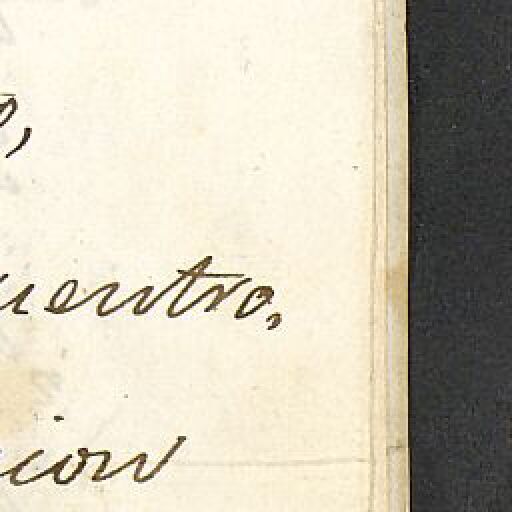 o,
uentro,
cion